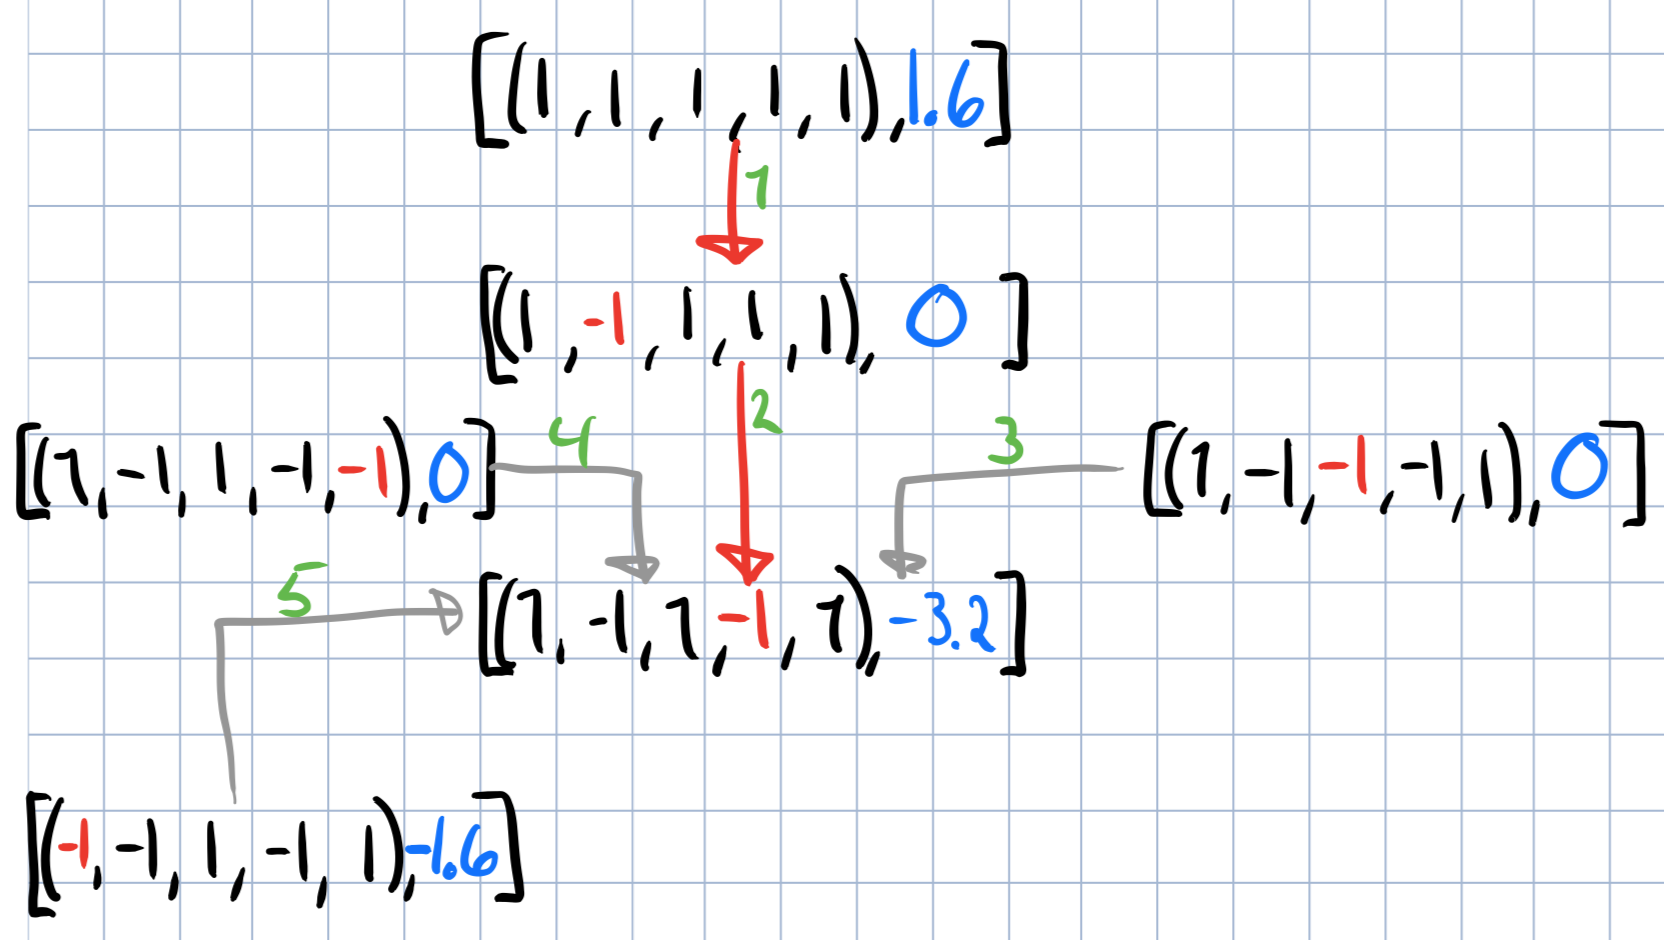 [(1, 1, 1, 1, 1), 1.6]
1
[(1, -1, 1, 1, 1), 0]
2
[(1, -1, 1, -1, -1), 0]
4
3
[(1, -1, -1, -1, 1), 0]
5
[(1, -1, 1, -1, 1), -3.2]
[(-1, -1, 1, -1, 1), -1.6]